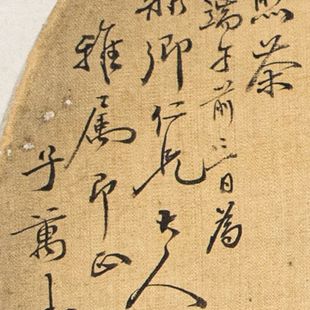 煎茶
端午前三日為
卿仁兄大人
雅属即正
子萬